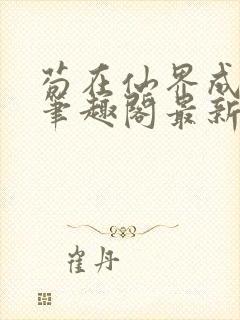 苟在仙界成
笔趣阁最新
崔丹